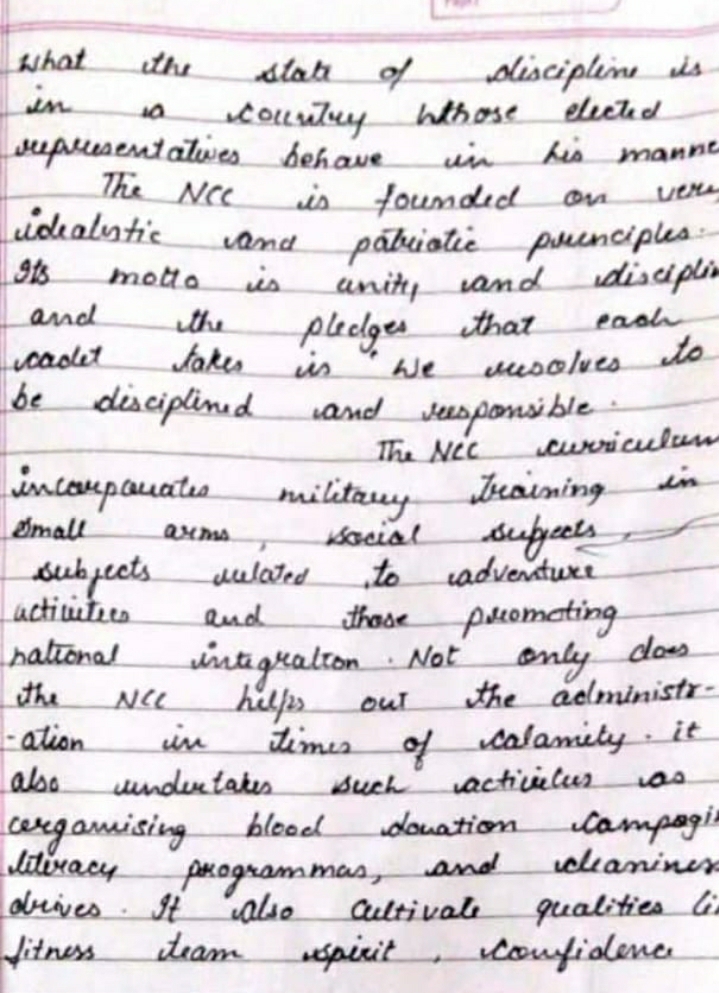 what the state of discipline is
in a country whose elected
representatives behave in his manne
The NCC is founded on very
idealistic and patriotic principles.
Its motto is unity and disciplin
and the pledges that each
cadet takes is "We resolves to
be disciplined and responsible.
The NCC curriculum
incorporates military training in
small arms, social subjects
subjects related to adventure
activities and those promoting
national integration. Not only does
the NCC helps out the administr-
-ation in times of calamity. it
also undertakes such activities as
cergamising blood donation campagi
literacy programmas, and cleaniness
drives. It also cultivate qualities li
fitness team spirit, confidence